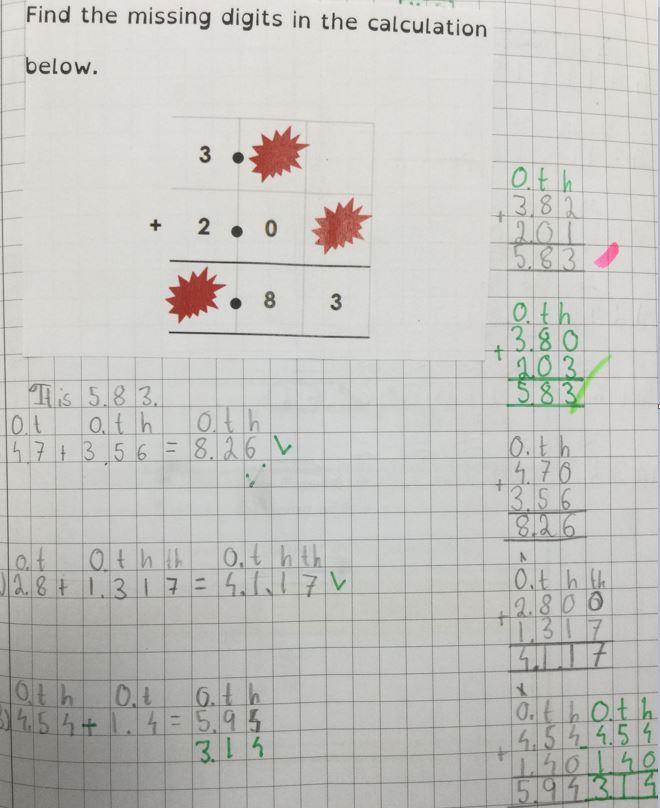 Find the missing digits in the calculation
below.
3 .
+ 2 . 0
. 8 3
It is 5.83.
O.t O.t h O.t h
4.7 + 3.56 = 8.26 ✓
O.t O.t h th O.t h th
2.8 + 1.317 = 4.1.17 ✓
O.t h O.t O.t h
4.54 + 1.4 = 5.94
3.14
O.t h
3.82
+ 2.01
5.83
O.t h
3.80
+ 2.03
5.83 ✓
O.t h
4.70
+ 3.56
8.26
O.t h th
+ 2.800
1.317
4.1.17
O.t h O.t h
4.54 - 4.54
+ 1.40 1.40
5.94 3.14